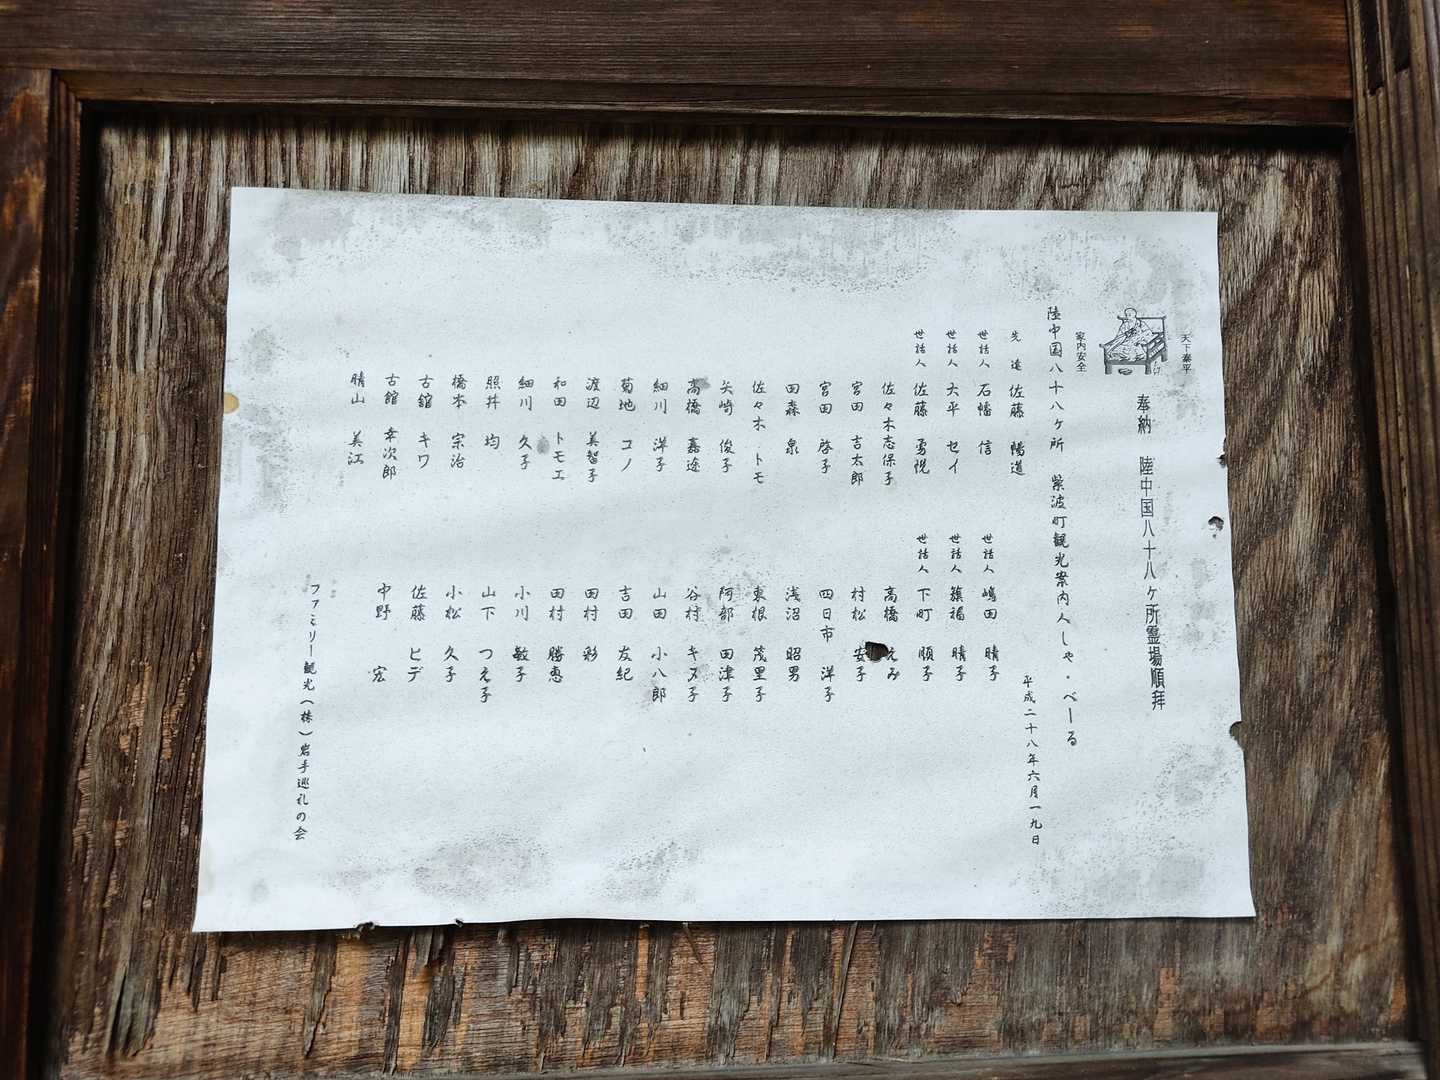 天下泰平
家内安全
奉納 陸中国八十八ヶ所霊場順拝
陸中国八十八ヶ所 紫波町観光案内人しゃ・べーる
平成二十八年六月一九日
先達 佐藤 陽道
世話人 石幡 信
世話人 大平 セイ
世話人 佐藤 勇悦
佐々木志保子
宮田 吉太郎
宮田 啓子
田森 泉
佐々木 トモ
矢崎 俊子
高橋 嘉途
細川 洋子
菊地 コノ
渡辺 美智子
和田 トモエ
細川 久子
照井 均
橋本 宗治
古舘 キワ
古舘 幸次郎
晴山 美江
世話人 嶋田 晴子
世話人 簱福 晴子
世話人 下町 順子
高橋 えみ
村松 安子
四日市 洋子
浅沼 昭男
東根 茂里子
阿部 田津子
谷村 キヌ子
山田 小八郎
吉田 友紀
田村 彩
田村 勝恵
小川 敏子
山下 つえ子
小松 久子
佐藤 ヒデ
中野 宏
ファミリー観光（株）岩手巡礼の会